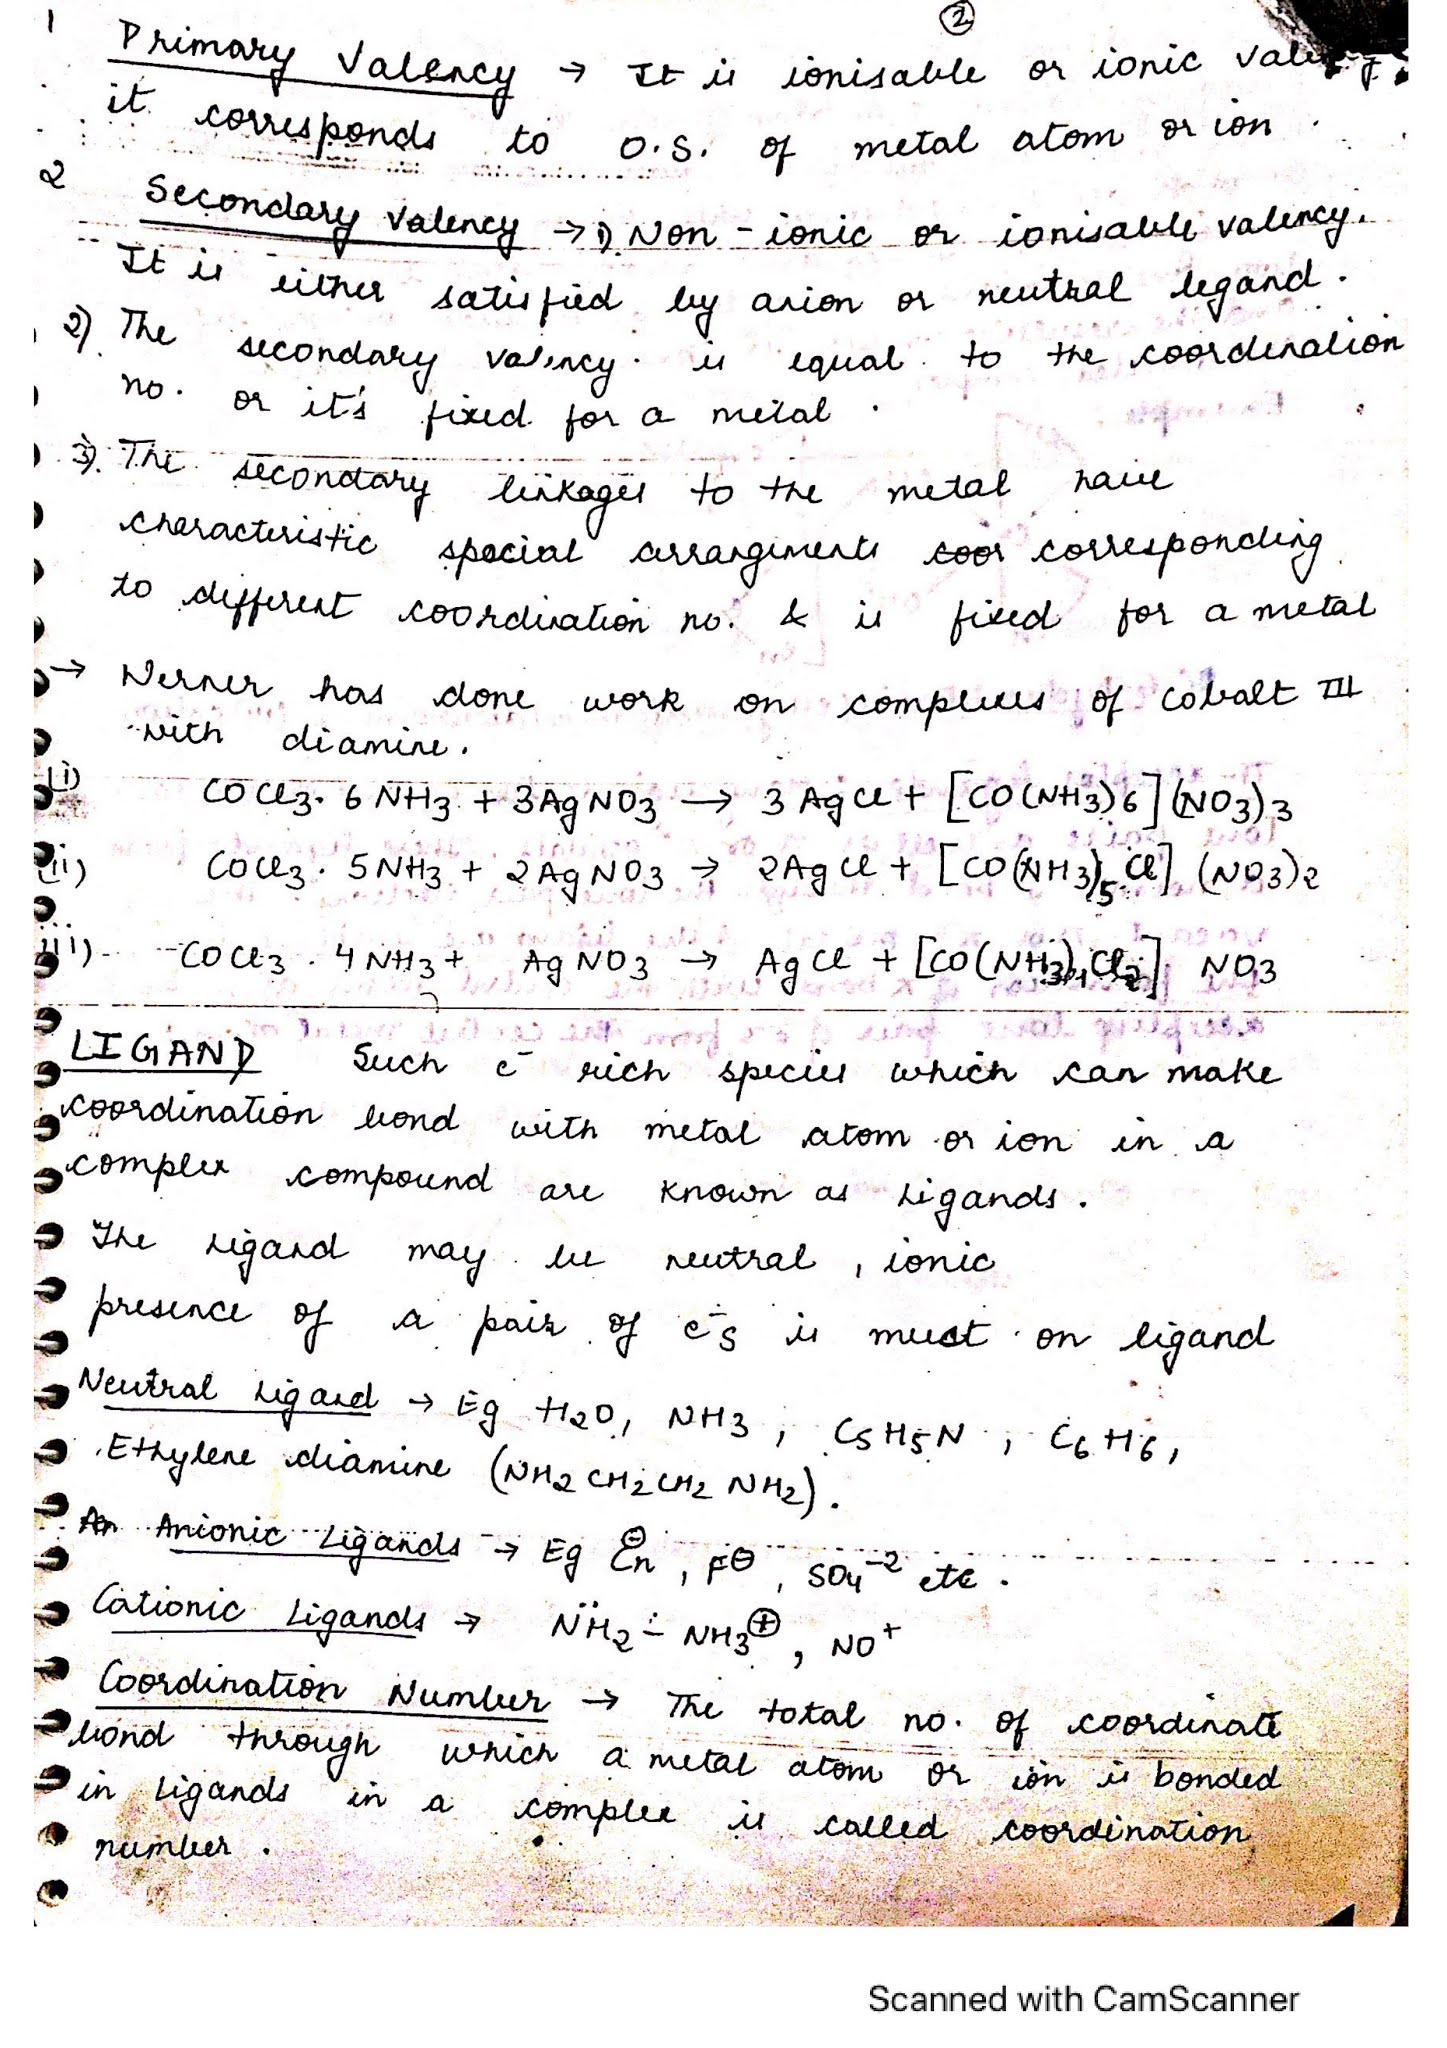 ②
1 Primary Valency → It is ionisable or ionic valency
it corresponds to O.S. of metal atom or ion.
2 Secondary Valency → 1) Non-ionic or ionisable valency.
It is either satisfied by anion or neutral legand.
2) The secondary valency is equal to the coordination
no. or it's fixed for a metal.
3) The secondary linkages to the metal have
characteristic special arrangements coor corresponding
to different coordination no. & is fixed for a metal
→ Werner has done work on complexes of Cobalt III
with diamine.
(i) COCl3. 6 NH3 + 3AgNO3 → 3 AgCl + [CO(NH3)6](NO3)3
(ii) COCl3. 5NH3 + 2AgNO3 → 2AgCl + [CO(NH3)5 Cl] (NO3)2
iii) COCl3. 4NH3 + AgNO3 → AgCl + [CO(NH3)4 Cl2] NO3
LIGAND Such e⁻ rich species which can make
coordination bond with metal atom or ion in a
complex compound are known as ligands.
The ligand may be neutral, ionic
presence of a pair of e⁻s is must on ligand
Neutral ligand → Eg H2O, NH3, C5H5N, C6H6,
Ethylene diamine (NH2CH2CH2 NH2).
An Anionic Ligands → Eg , F⊖, SO4⁻² etc.
Cationic Ligands → N̈H2 - NH3⊕, NO⁺
Coordination Number → The total no. of coordinate
bond through which a metal atom or ion is bonded
in ligands in a complex is called coordination
number.
Scanned with CamScanner